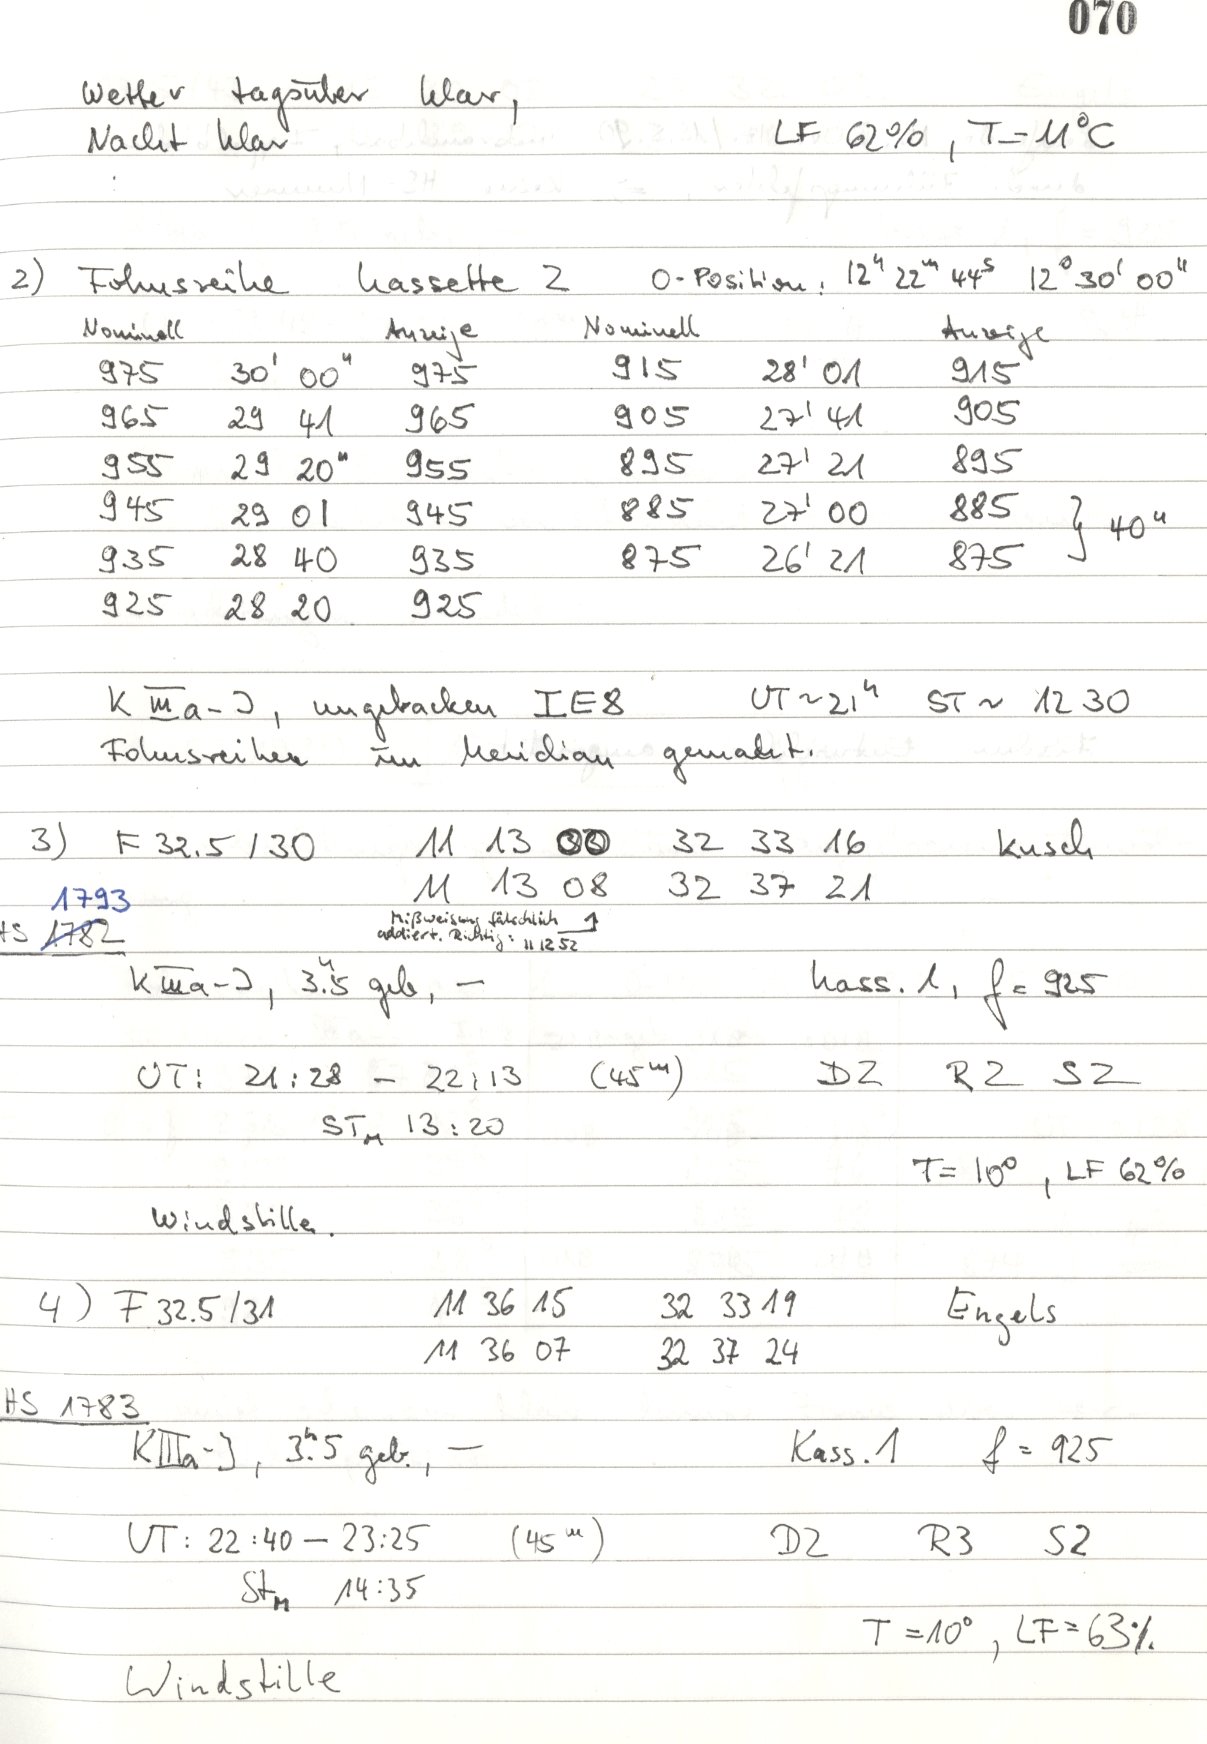 070
Wetter tagsüber klar,
Nacht klar LF 62% , T = 11°C
2) Fokusreihe Kassette 2 0-Position: 12h 22m 44s 12° 30' 00"
Nominell Anzeige Nominell Anzeige
975 30' 00" 975 915 28' 01 915
965 29 41 965 905 27' 41 905
955 29 20" 955 895 27' 21 895
945 29 01 945 885 27' 00 885
935 28 40 935 875 26' 21 875 } 40"
925 28 20 925
K IIIa-J, ungebacken IE8 UT ~ 21h ST ~ 12 30
Fokusreihen im Meridian gemacht.
3) F 32.5 / 30 11 13 00 32 33 16 Kusch
11 13 08 32 37 21
1793
Mißweisung fälschlich
addiert. Richtig: 11 12 52
HS 1782
K IIIa-J, 3h.5 geb, — Kass. 1, f = 925
UT: 21:28 – 22:13 (45m) D2 R2 S2
STM 13:20
T = 10° , LF 62%
Windstille.
4) F 32.5/31 11 36 15 32 33 19 Engels
11 36 07 32 37 24
HS 1783
K IIIa-J, 3h.5 geb., — Kass. 1 f = 925
UT: 22:40 – 23:25 (45m) D2 R3 S2
StM 14:35
T = 10° , LF = 63%
Windstille